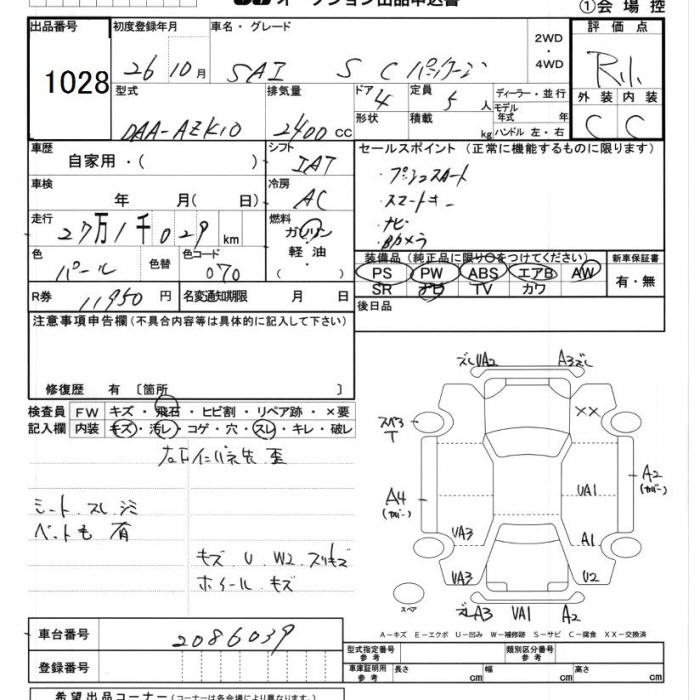 オークション出品申込書
①会場控
出品番号 初度登録年月 車名・グレード 評価点
1028 26 10月 SAI S Cパッケージ 2WD・4WD R小
型式 排気量 ドア 4 定員 5 人 ディーラー・並行 外装 内装
DAA-AZK10 2400 CC 形状 積載 kg モデル年式 年 ハンドル 左・右 C C
車歴 シフト セールスポイント (正常に機能するものに限ります)
自家用・( ) IAT ・プッシュスタート
車検 冷房 ・スマートキー
年 月( 日) AC ・ナビ
走行 燃料 ・Bカメラ
27万1千029 km ガソリン・軽油・( )
装備品(純正品に限り○をつけてください) 新車保証書
色 パール 色替 色コード 070 PS PW ABS エアB AW 有・無
SR ナビ TV カワ
R券 11950 円 名変通知期限 月 日 後日品
注意事項申告欄(不具合内容等は具体的に記入して下さい)
修復歴 有 〔箇所 〕
検査員 FW キズ・飛石・ヒビ割・リペア跡・×要
記入欄 内装 キズ・汚レ・コゲ・穴・スレ・キレ・破レ
シート、スレ、シミ
ペット毛 有
キズ U W2 スリキズ
ホイール キズ
ズレ UA2 A3 ズレ
スペア T ××
A4 (カバー) UA1 A2 (カバー)
UA3 A1
UA3 U2
スペア ズレA3 UA1 A2
A-キズ E-エクボ U-凹み W-補修跡 S-サビ C-腐食 XX-交換済
車台番号 2086039
型式指定番号 参考 類別区分番号 参考
登録番号 車庫証明用 参考 長さ cm 幅 cm 高さ cm
希望出品コーナー(コーナーは各会場により異なります)